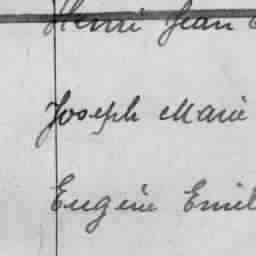 Henri Jean
Joseph Marie
Eugène Emil